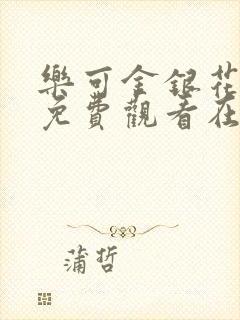 樂可金銀花
免費觀看在
蒲哲